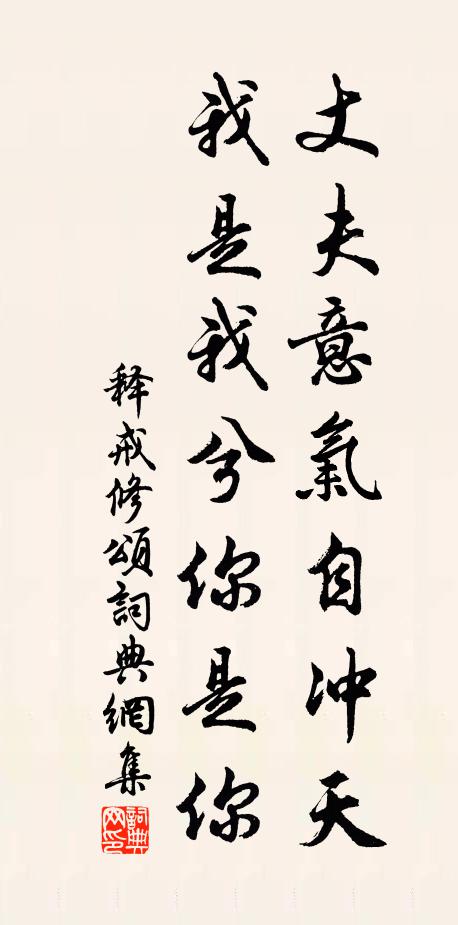 丈夫意氣自沖天
我是我兮你是你
释戒修頌詞典網集
詞典网印